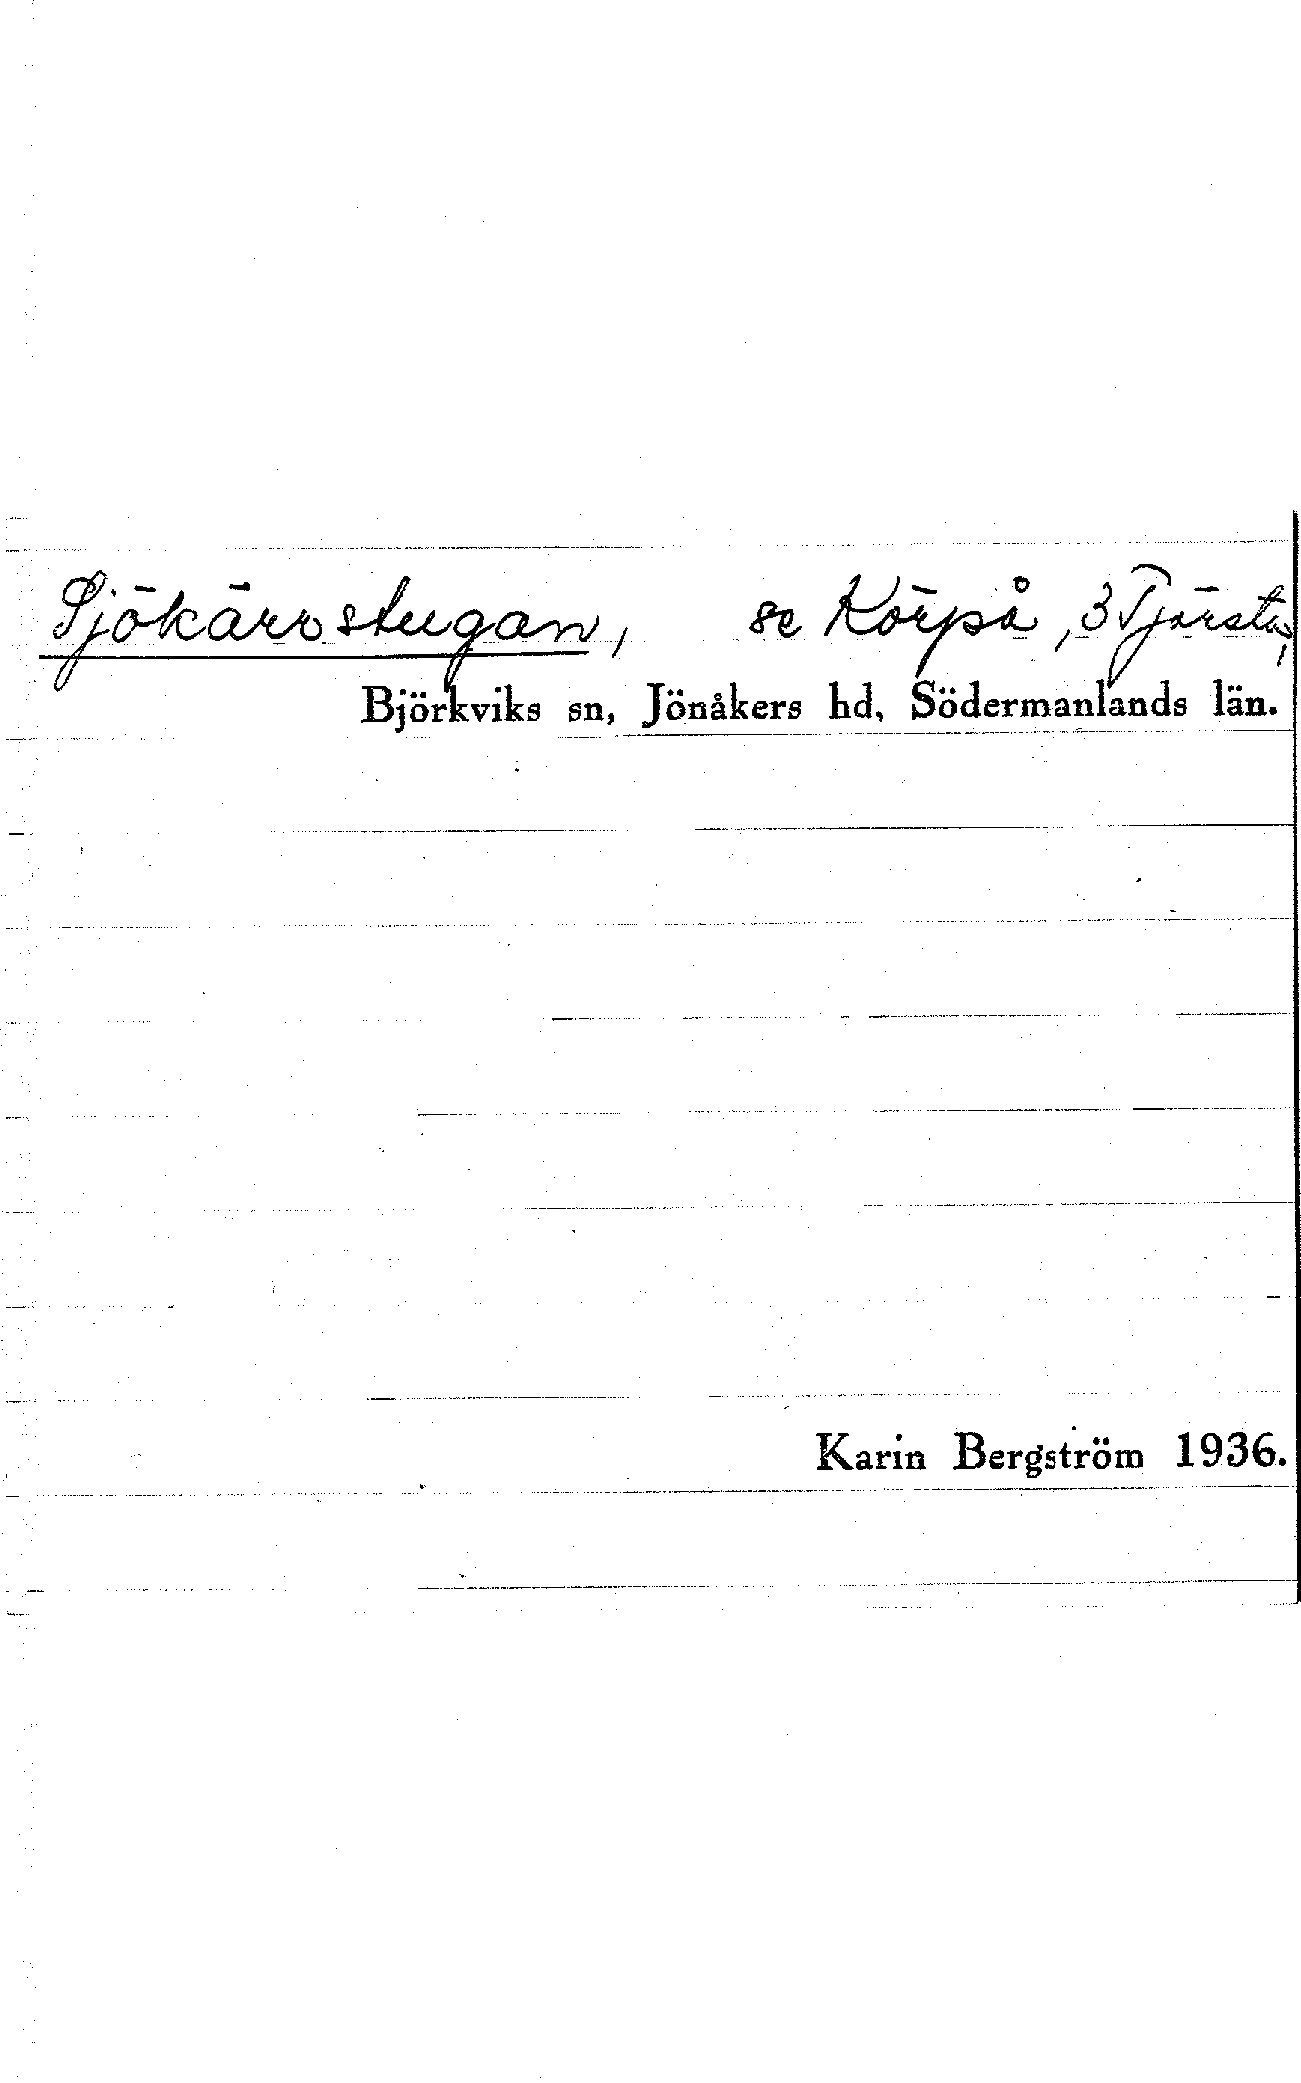 Sjökärrstugan, se Körpå, 3 Tjärsta,
Björkviks sn, Jönåkers hd, Södermanlands län.
Karin Bergström 1936.